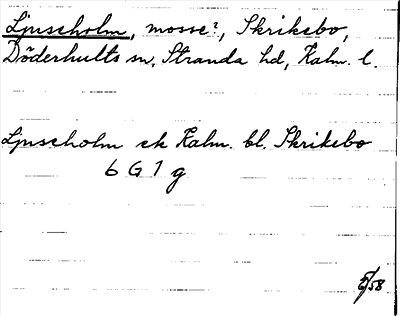 Ljusscholm, mosse?, Skrikebo,
Döderhults sn, Stranda hd, Kalm. l.
Ljusscholm ek Kalm. bl. Skrikebo
6 G 1 g
5/58